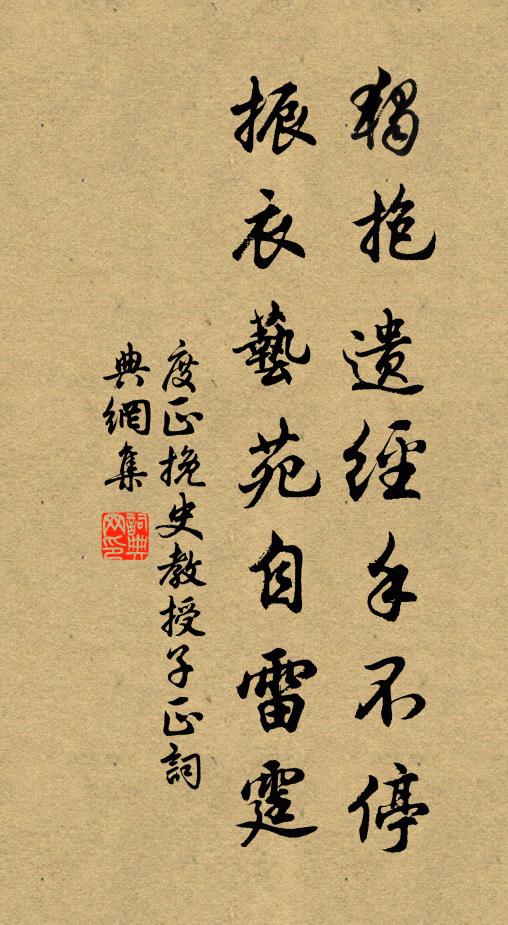 獨抱遺經手不停
振衣藝苑自雷霆
度正挽史教授子正詞
典網集
詞典
网印